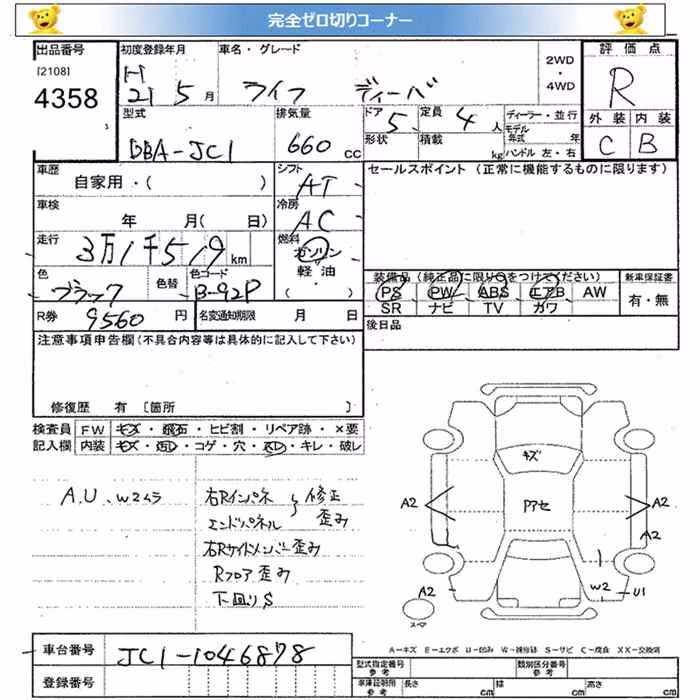 完全ゼロ切りコーナー
出品番号 初度登録年月 車名・グレード 2WD・4WD 評価点
[2108] 4358 H 21 5月 ライフ ディーバ R
型式 排気量 ドア 定員 ディーラー・並行 外装 内装
DBA-JC1 660 cc 5 4人 モデル年式 年 C B
形状 積載 kg ハンドル 左・右
車歴 シフト セールスポイント (正常に機能するものに限ります)
自家用・( ) AT
車検 冷房
年 月( 日) AC
走行 燃料
3万1千519km ガソリン・軽油・( )
色 色替 色コード 装備品(純正品に限り○をつけてください) 新車保証書
ブラック B-92P PS PW ABS エアB AW 有・無
SR ナビ TV カワ
R券 9560円 名変通知期限 月 日 後日品
注意事項申告欄(不具合内容等は具体的に記入して下さい)
修復歴 有 〔箇所 〕
検査員 FW キズ・飛石・ヒビ割・リペア跡・×要
記入欄 内装 キズ・凹・コゲ・穴・・キレ・破レ
A.U、W2ムラ
右Rインパネ 修正
エンドパネル 歪み
右Rサイドメンバー歪み
Rフロア歪み
下回りS
キズ
A2 Pアセ A2
A2
A2 W2 U1
スマ
A-キズ E-エクボ U-凹み W-補修跡 S-サビ C-腐食 XX-交換済
車台番号 JC1-1046878 型式指定番号 類別区分番号
登録番号 車庫証明用 長さ cm 幅 cm 高さ cm
参考 参考